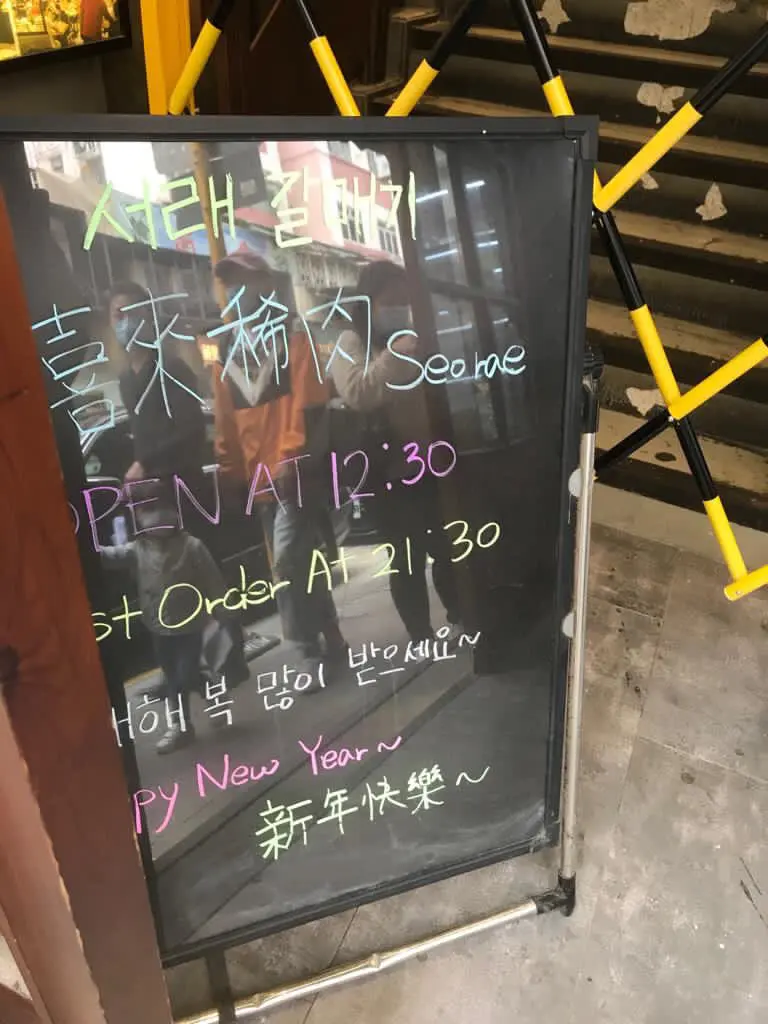 서래 갈매기
喜來稀肉 Seorae
OPEN AT 12:30
st Order At 21:30
해 복 많이 받으세요~
py New Year~
新年快樂~